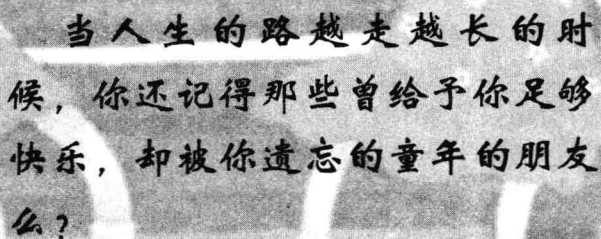 当人生的路越走越长的时
候，你还记得那些曾给予你足够
快乐，却被你遗忘的童年的朋友
么？